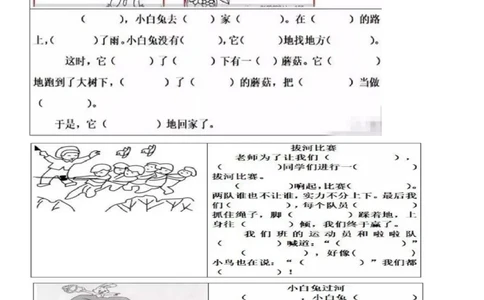 （　　　），小白兔去（　　）家（　　）。在（　　）的路
上，（　　　）了雨。小白兔没有（　　），它（　　）地找地方（　　）。
这时，它（　　）了（　　）下有一（　　）蘑菇。它（　　）
地跑到了大树下，（　　）了（　　）的蘑菇，把（　　）当做
（　　）。
于是，它（　　）地回家了。
拔河比赛
老师为了让我们（　　　　），
（　　　）同学们进行一（　　　）
拔河比赛。
（　　　）响起，比赛（　　　）。
两队谁也不让谁，实力不分上下。最后我
们（　　　），每个队员（　　　）
抓住绳子，脚（　　　）踩着地，上
身往（　　）倾，我们终于赢了。
我们班的运动员和啦啦队
（　　　）喊道：“（　　　　　）”
（　　　），好像（　　　　）
小鸟也在说：“（　　　）”我们都
（　　　）！
小白兔过河
（　　　），小白兔（　　　）